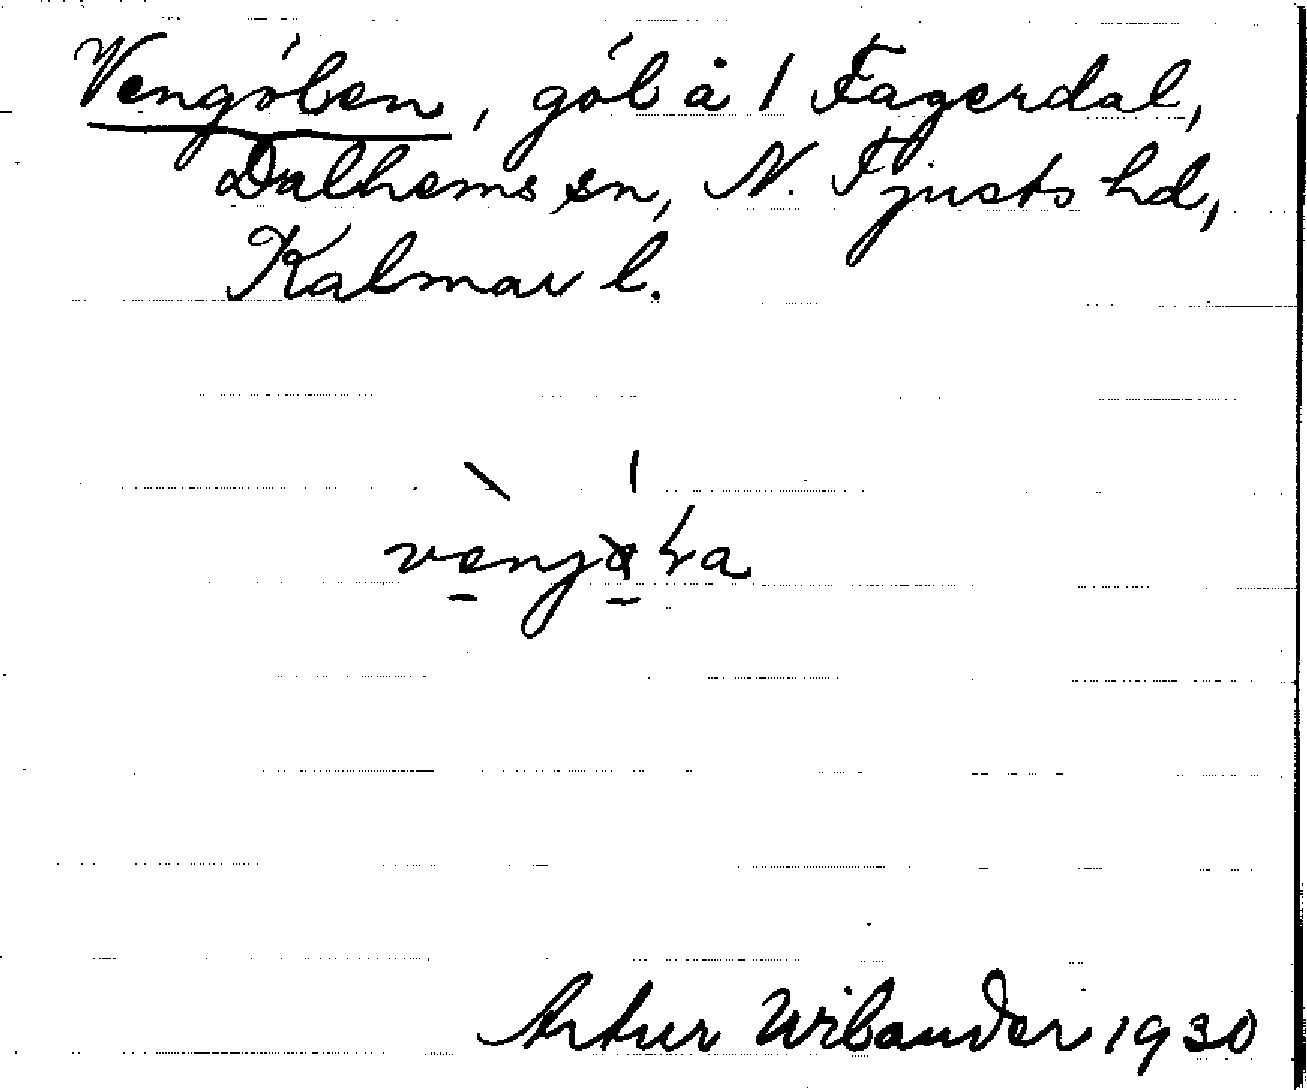 Vengólen, gól å 1 Fagerdal,
Dalhems sn, N. Tjusts hd,
Kalmar l.
Artur Wilander 1930